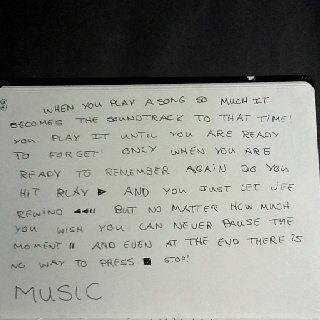 WHEN YOU PLAY A SONG SO MUCH IT
BECOMES THE SOUNDTRACK TO THAT TIME!
YOU PLAY IT UNTIL YOU ARE READY
TO FORGET! ONLY WHEN YOU ARE
READY TO REMEMBER AGAIN DO YOU
HIT PLAY ▶ AND YOU JUST LET LIFE
REWIND ◀◀II BUT NO MATTER HOW MUCH
YOU WISH YOU CAN NEVER PAUSE THE
MOMENT II AND EVEN AT THE END THERE IS
NO WAY TO PRESS ■ STOP!
MUSIC